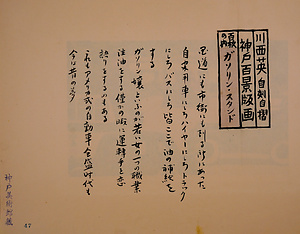 川西英 自刻自摺
神戸百景版画
百景の内 ガソリン・スタンド
国道にも市街にも到る所にあった
自家用車にもハイヤーにもトラック
にもバスにも皆ここで油の補給を
する
ガソリン嬢といふのが若い女の一つの職業
注油をする僅かの暇に運轉手と恋
語りをするのもある
これもアメリカ式の自動車全盛時代も
今は昔の夢
神戸美術館蔵
47